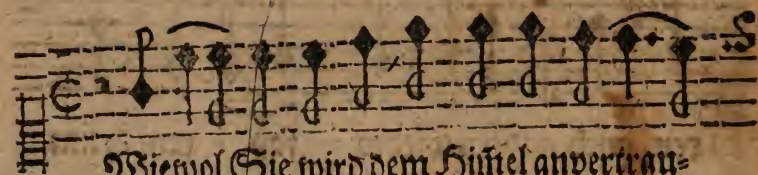 Wiewol Sie wird dem Himel anvertrau⸗